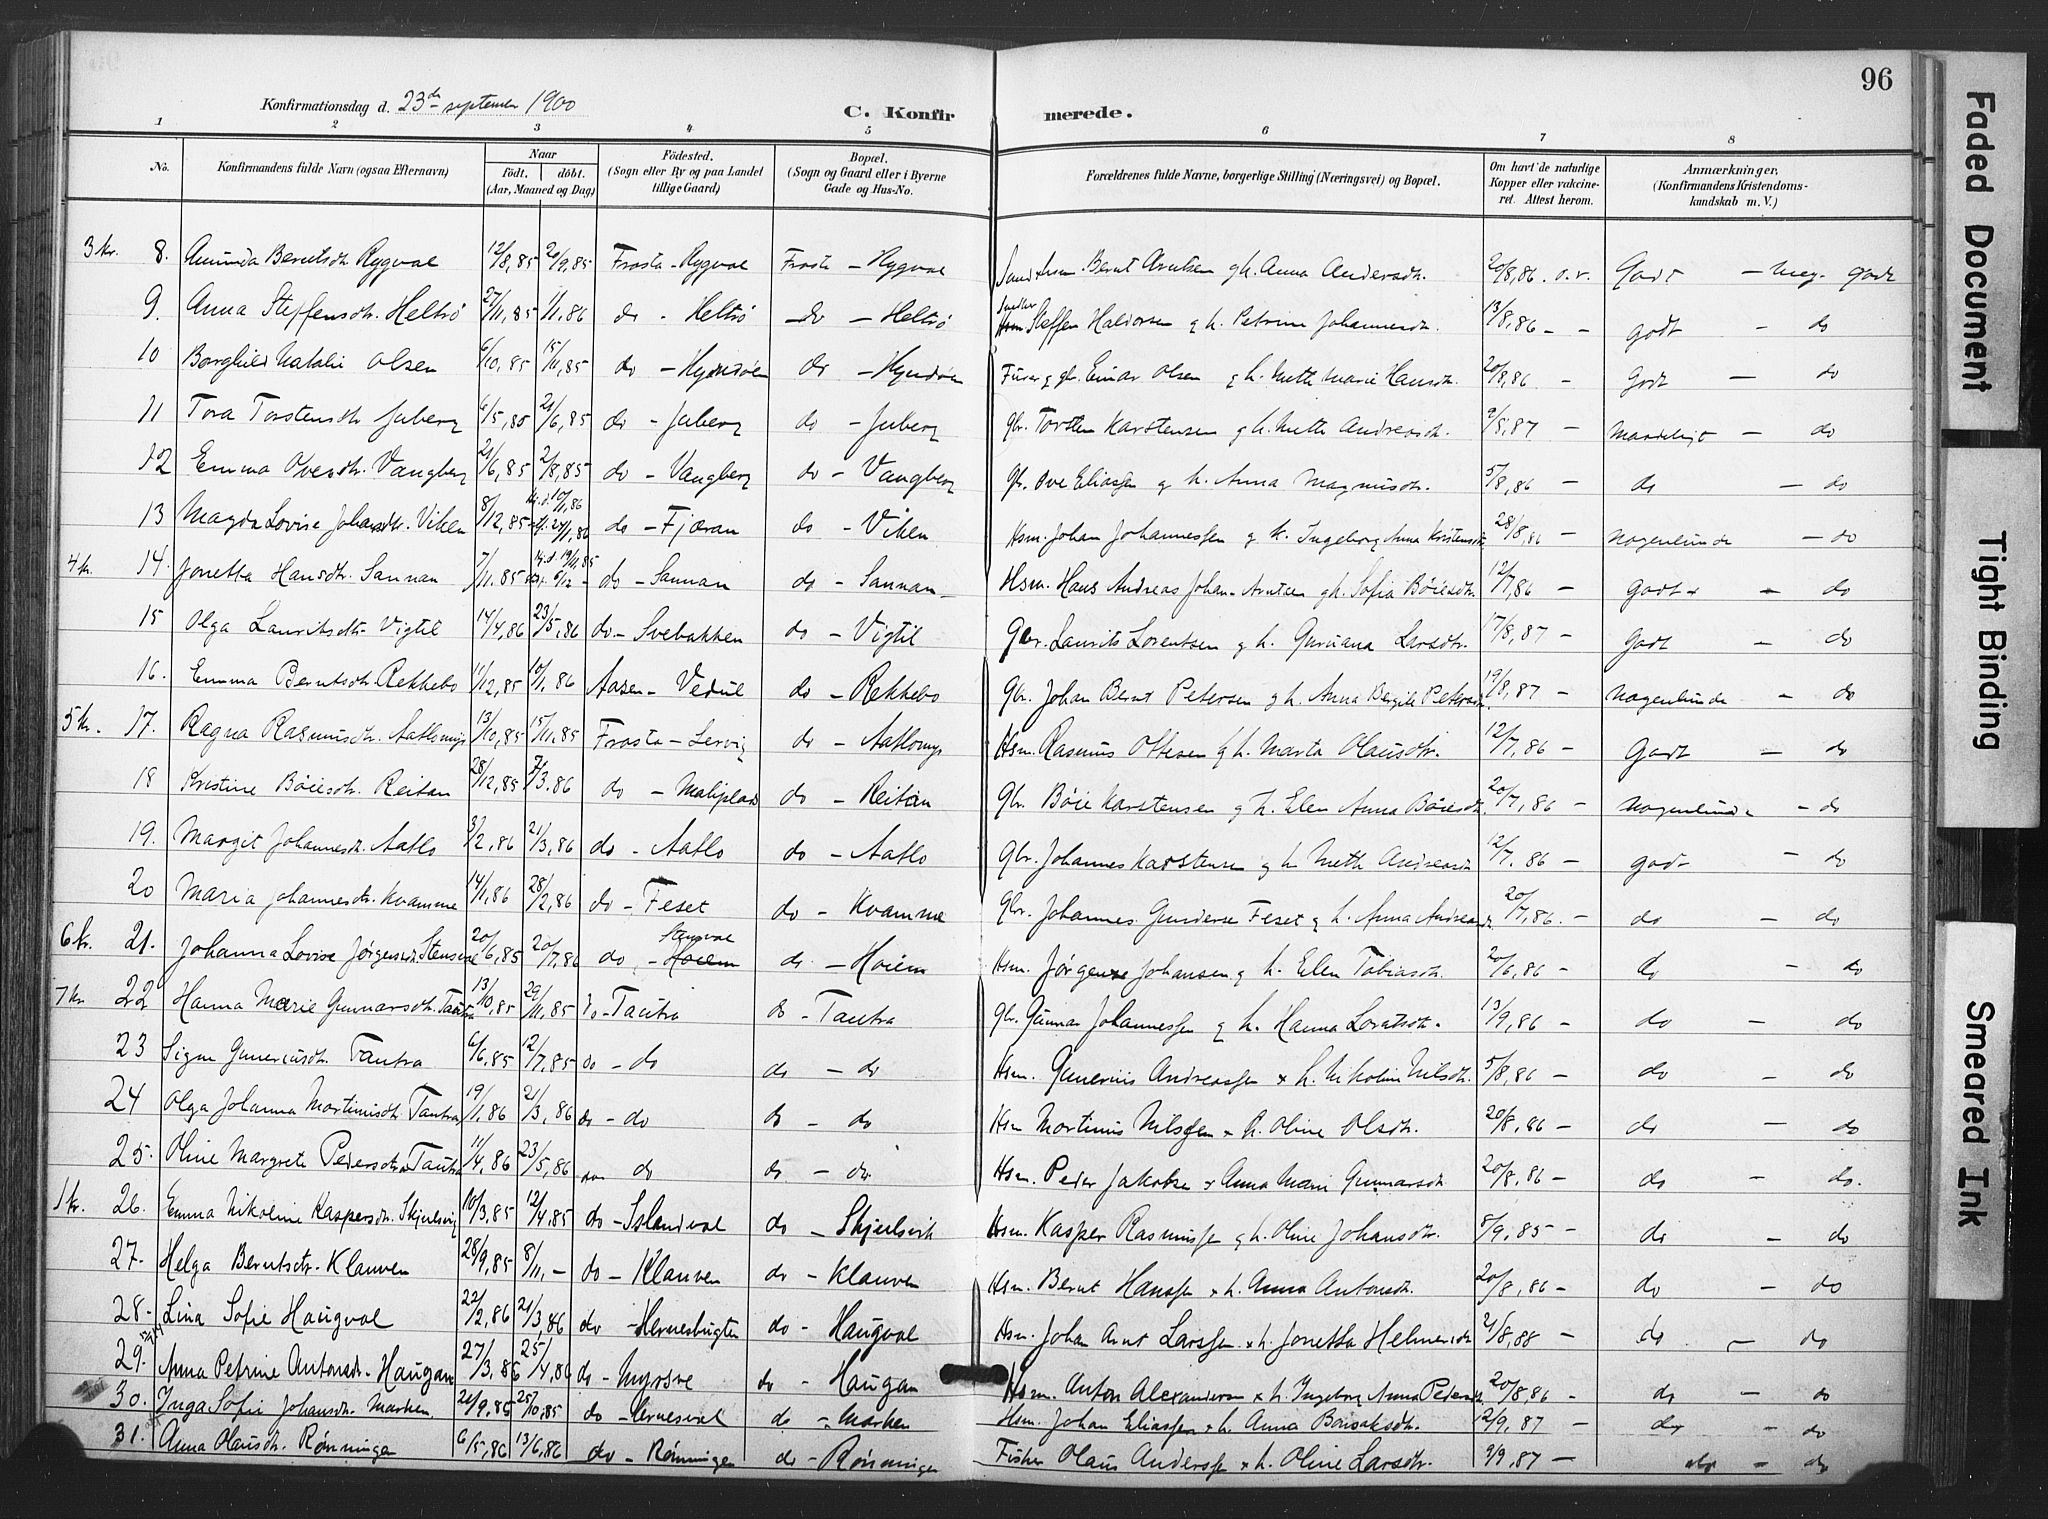 96
Konfirmationsdag d. 23de september 1900
C. Konfirmerede.
1 2 3 4 5 6 7 8
No. Konfirmandens fulde Navn (ogsaa Efternavn) Naar Födt. döbt. (Aar, Maaned og Dag) Födested. (Sogn eller By og paa Landet tillige Gaard) Bopæl. (Sogn og Gaard eller i Byerne Gade og Hus-No. Forældrenes fulde Navne, borgerlige Stilling (Næringsvei) og Bopæl. Om havt de naturlige Kopper eller vakcineret. Attest herom. Anmærkninger, (Konfirmandens Kristendomskundskab m. V.)
3 kr. 8. Amunda Berntsdtr. Rygvol 12/8,85 20/9,85 Frosta - Rygvol Frosta - Rygvol Bernt Arntsen g h. Anna Andersdtr. 20/8,86 Godt - meg. godt
9. Anna Steffensdtr. Heltsö 27/11,85 1/1,86 do - Heltsö do - Heltsö Hsm Steffen Haldorsen g h. Petrine Johannesdtr. 13/8,86 - - godt - do
10 Borghild Natalie Olsen 6/10,85 15/11,85 do - Hyndöen do - Hyndöen Einar Olsen g h. Mette Marie Hansdtr. 20/8,86 - Godt - do
11 Tora Torstensdtr Juberg 6/5,85 21/6,85 do - Juberg do - Juberg Gbr. Torsten Karstensen g h. Mette Andreasdtr. 9/8,87 - Maadeligt - do
12 Emma Ovesdtr. Vangberg 21/6,85 2/8,85 do - Vangberg do - Vangberg Gbr. Ove Eliassen g h. Anna Magnusdtr. 5/8,86 - do - do
13 Magda Lovise Johansdtr. Viken 8/12,85 hj. d. 10/1,86 24/1,86 do - Fjæran do - Viken Hsm. Johan Johannessen g h. Ingeborg Anna Kristensdtr. 28/8,86 - nogenlunde - do
4 kr. 14. Jonetta Hansdtr. Sannan 7/11,85 hj. d. 19/11,85 6/12 - do - Sannan do - Sannan Hsm. Hans Andreas Johan Arntsen g h. Sofia Böiesdtr. 12/7,86 - Godt - do
15 Olga Lauritsdtr. Vigtil 14/4,86 23/5,86 do - Svebakken do - Vigtil Gbr. Laurits Lorentsen g h. Guruana Larsdtr. 17/8,87 - Godt - do
16. Emma Berntsdtr. Rekkebo 11/12,85 10/1,86 Aasen - Vedul do - Rekkebo Gbr. Johan Bernt Petersen g h. Anna Bergitte Petersdtr. 19/8,87 - nogenlunde - do
5 kr. 17. Ragna Rasmusdtr. Aatlomyr 13/10,85 15/11,85 Frosta - Lervig do - Aatlomyr Hsm. Rasmus Ottesen g h. Marta Olausdtr. 12/7,86 - Godt - do
18 Kristine Böiesdtr. Reitan 28/12,85 7/3.86 do - Maliplads do - Reitan Gbr. Böie Karstensen g h. Elen Anna Böiesdtr. 20/7,86 - nogenlunde - do
19. Margit Johannesdtr. Aatlo 3/2,86 21/3,86 do - Aatlo do - Aatlo Gbr. Johannes Karstensen g h Mette Andreasdtr 12/7.86 - godt - do
20 Maria Johannesdtr. Kvamme 14/1,86 28/2,86 do - Feset do - Kvamme Gbr. Johannes Gundersen Feset g h. Anna Andreasdtr. 20/7,86. - do - do
6 kr. 21. Johanna Lovise Jörgensdtr Stensvol 20/6,85 20/7,86 do - Stensvol Hoiem do - Hoiem Hsm. Jörgen Johansen g h. Elen Tobiasdtr. 20/6,86 - do - do
7 kr 22 Hanna Marie Gunnarsdtr. Tautra 13/10,85 29/11,85 do - Tautra do - Tautra Gbr. Gunnar Johannessen g h. Hanna Loratsdtr. 13/9,86 - do - do
23 Signe Guneriusdtr. Tautra 6/6,85 12/7,85 do - do do - do Hsm. Gunerius Andreassen & h. Nikoline Nilsdtr. 5/8,86 - do - do
24 Olga Johanna Mortinusdtr. Tautra 19/1,86 21/3,86 do - do do - do Hsm Mortinus Nilssen & h. Oline Olsdtr. 20/8,86 - do - do
25. Oline Margrete Pedersdtr. Tautra 11/4,86 23/5,86 do do - do Hsm. Peder Jakobsen & Anna Marie Gunnarsdtr 20/8,86 - do - do.
1 kr. 26. Emma Nikoline Kaspersdtr. Skjelsvig 10/3,85 12/4,85 do - Sslandvol do - Skjelsvik Hsm. Kasper Rasmussen g h. Oline Johansdtr. 5/9,85 - do - do
27. Helga Berntsdtr. Klauven 28/9,85 8/11,- do - Klauven do - Klauven Hsm. Bernt Hanssen & h. Anna Antonsdtr. 20/8,86 - do - do
28. Lina Sofie Haugvol 22/2,86 21/3,86 do - Hernesbugten do - Haugvol Hsm. Johan Arnt Larssen & h. Jonetta Helmersdtr 2/8,88 - do - do
29. Anna Petrine Antonsdtr. Haugan 27/3,86 25/4,86 do - Myrsve do - Haugan Hsm. Anton Alexandersen & h. Ingeborg Anna Pedersdtr. 20/8,86 - do - do
30. Inga Sofie Johansdtr. Marken. 21/9,85 25/10,85 do - do - Marken Hsm. Johan Eliassen & h. Anna Bonsaksdtr. 2/9,87 - do - do
31. Anna Olausdtr. Rönningen 6/5,86 13/6,86 do - Rönningen do - Rönningen Fisher Olaus Anderssen & h. Oline Larsdtr. 9/9,87 - do - do
Faded Document
Tight Binding
Smeared Ink